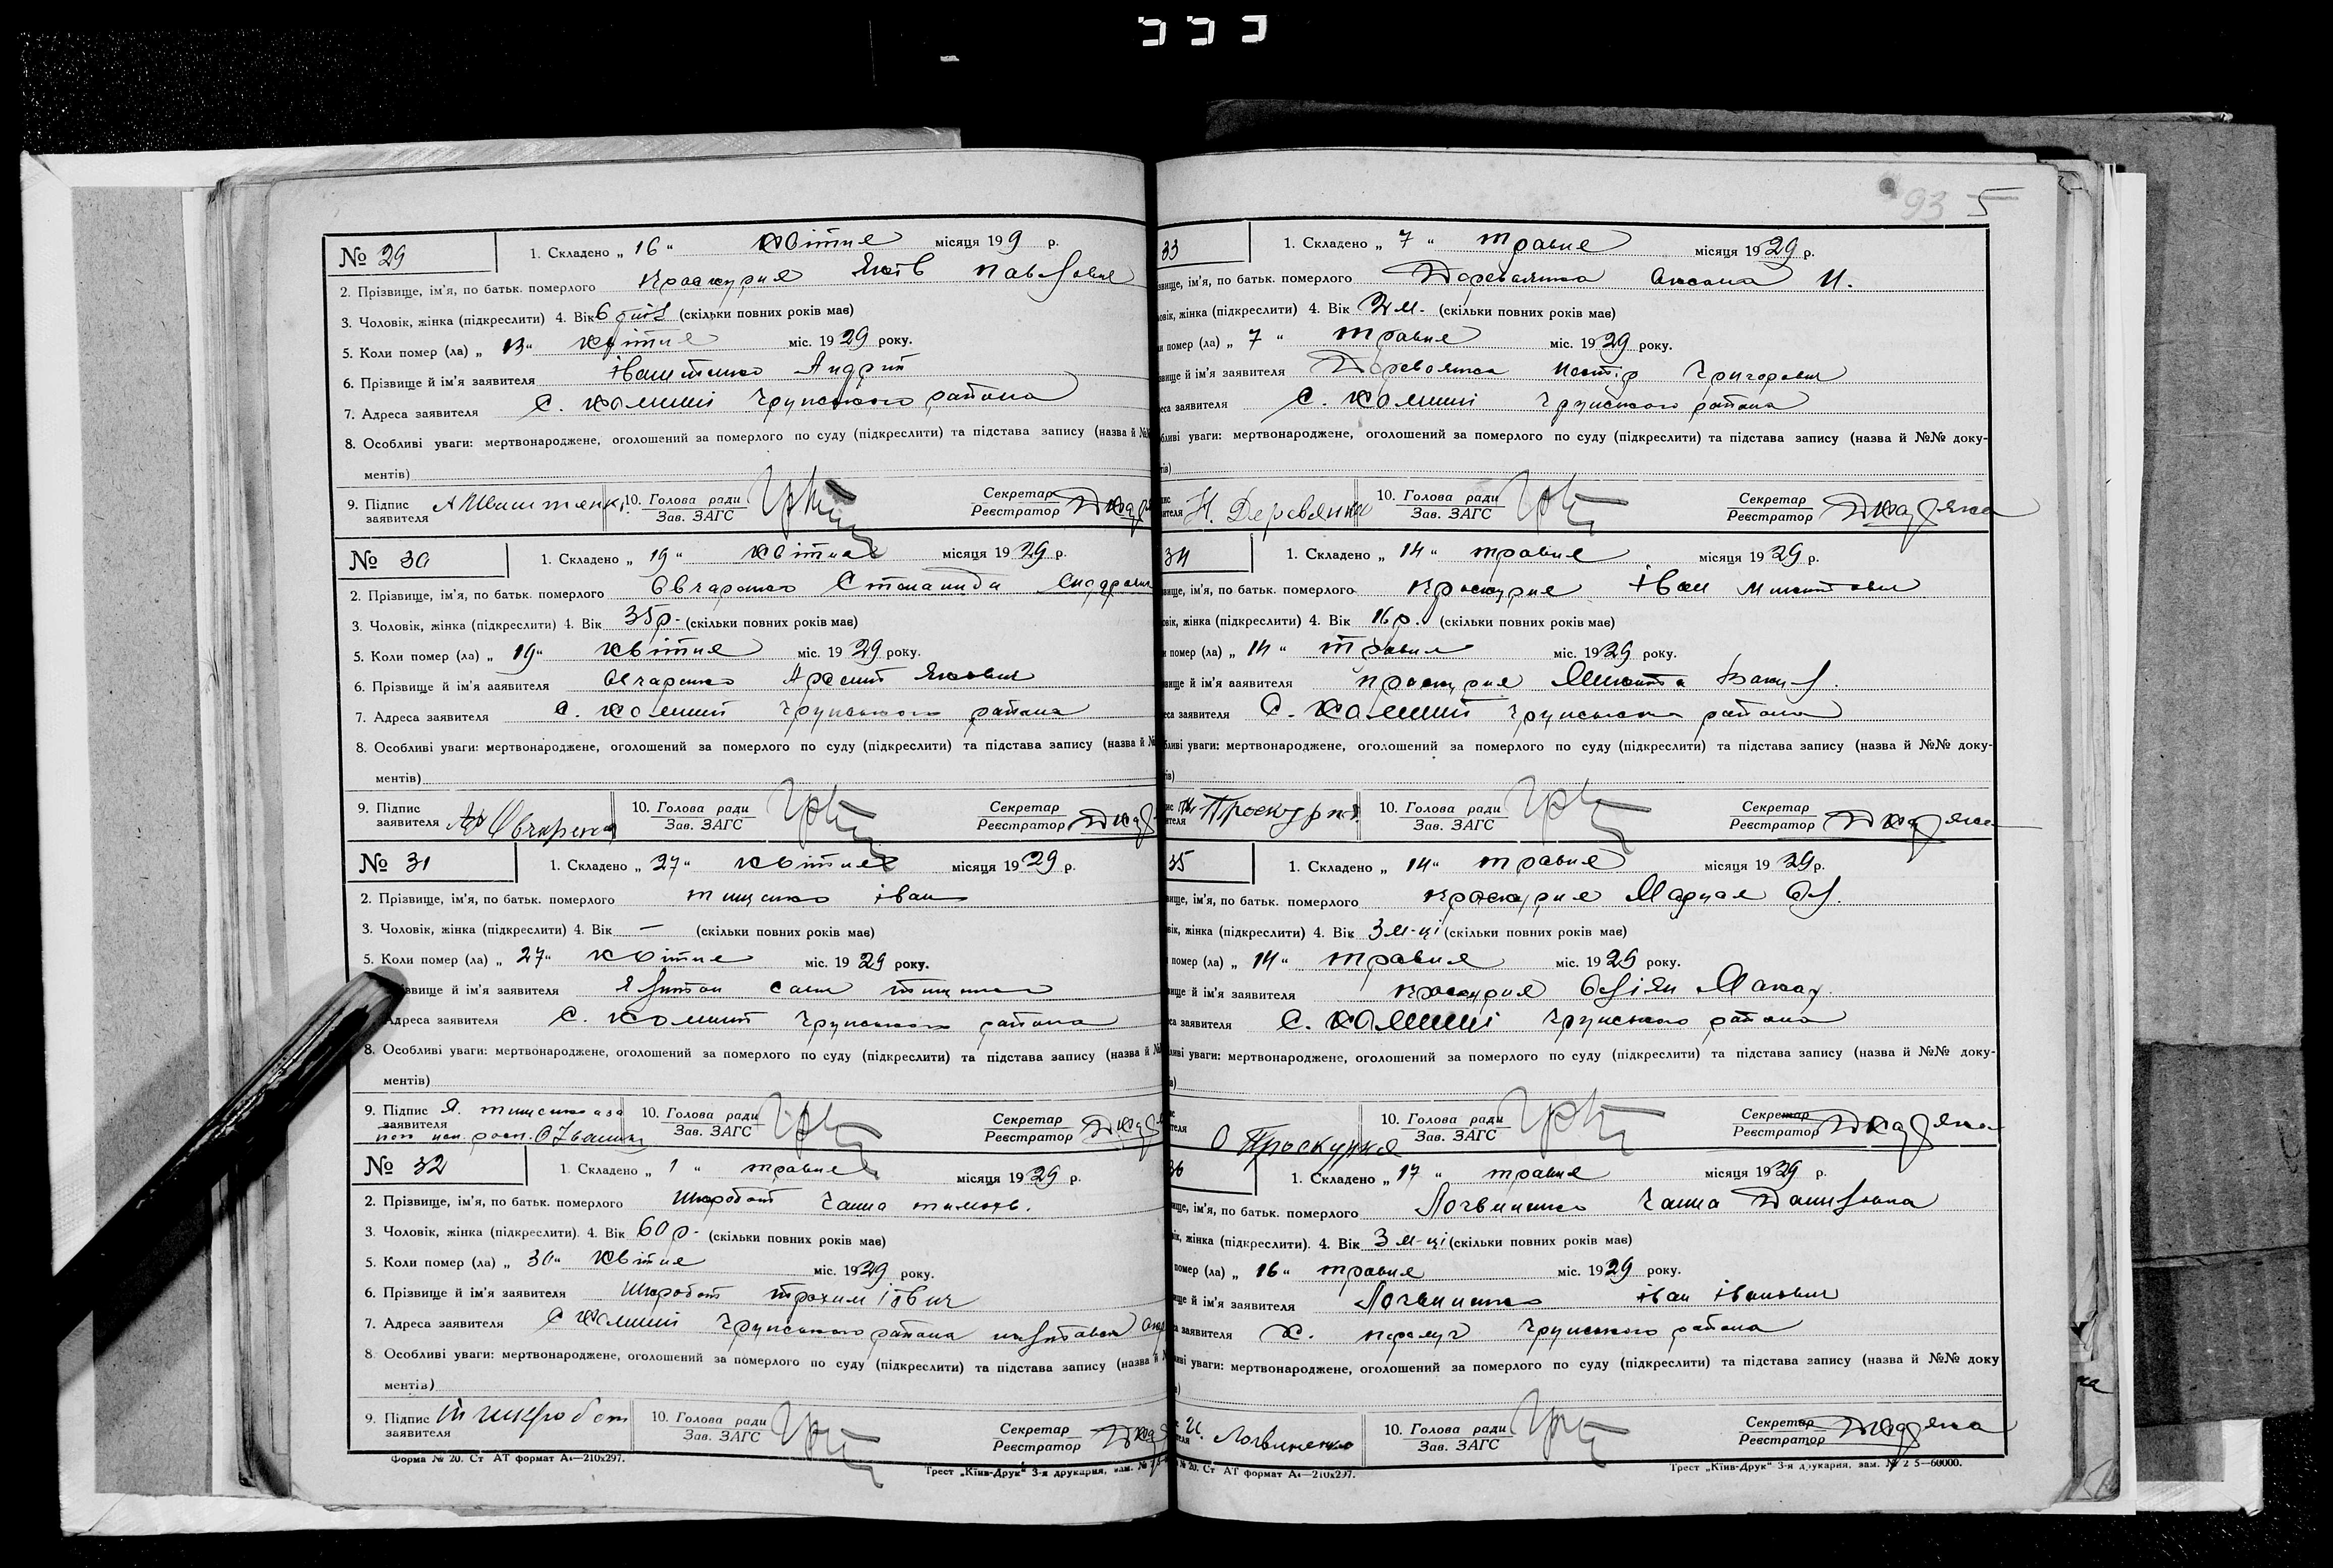 93 5
№ 29 1. Складено „ 16 “ квітня місяця 19 9 р.
2. Прізвище, ім'я, по батьк. померлого Проскурня Яків Павлович
3. Чоловік, жінка (підкреслити) 4. Вік 6 днів (скільки повних років має)
5. Коли помер (ла) „ 13 “ квітня міс. 19 29 року.
6. Прізвище й ім'я заявителя Андрій
7. Адреса заявителя с. Комиші Грунського району
8. Особливі уваги: мертвонароджене, оголошений за померлого по суду (підкреслити) та підстава запису (назва й №
ментів)
9. Підпис заявителя 10. Голова ради Зав. ЗАГС Секретар Реєстратор
№ 30 1. Складено „ 19 “ квітня місяця 19 29 р.
2. Прізвище, ім'я, по батьк. померлого Овчаренко Степанида Сидоровна
3. Чоловік, жінка (підкреслити) 4. Вік 35 р. (скільки повних років має)
5. Коли помер (ла) „ 19 “ квітня міс. 19 29 року.
6. Прізвище й ім'я заявителя Овчаренко Якович
7. Адреса заявителя с. Комиші Грунського района
8. Особливі уваги: мертвонароджене, оголошений за померлого по суду (підкреслити) та підстава запису (назва й №
ментів)
9. Підпис заявителя Овчаренко 10. Голова ради Зав. ЗАГС Секретар Реєстратор
№ 31 1. Складено „ 27 “ квітня місяця 19 29 р.
2. Прізвище, ім'я, по батьк. померлого Тищенко Іван
3. Чоловік, жінка (підкреслити) 4. Вік — (скільки повних років має)
5. Коли помер (ла) „ 27 “ квітня міс. 19 29 року.
звище й ім'я заявителя Тищенко
Адреса заявителя с. Комиші Грунського района
8. Особливі уваги: мертвонароджене, оголошений за померлого по суду (підкреслити) та підстава запису (назва й №
ментів)
9. Підпис заявителя Я. Тищенко а за 10. Голова ради Зав. ЗАГС Секретар Реєстратор
№ 32 1. Складено „ 1 “ травня місяця 19 29 р.
2. Прізвище, ім'я, по батьк. померлого Шкробот Ганна Тимохв.
3. Чоловік, жінка (підкреслити). 4. Вік 60 р. (скільки повних років має)
5. Коли помер (ла) „ 30 “ квітня міс. 19 29 року.
6. Прізвище й ім'я заявителя Шкробот Трохим
7. Адреса заявителя с Комиші Грунського района
8. Особливі уваги: мертвонароджене, оголошений за померлого по суду (підкреслити) та підстава запису (назва й №
ментів)
9. Підпис заявителя Т Шкробот 10. Голова ради Зав. ЗАГС Секретар Реєстратор
Форма № 20. Ст АТ формат А4—210х297. Трест „Київ-Друк“ 3-я друкарня, зам. №
33 1. Складено „ 7 “ травня місяця 19 29 р.
звище, ім'я, по батьк. померлого Деревянка Оксана Н.
овік, жінка (підкреслити) 4. Вік м. (скільки повних років має)
и помер (ла) „ 7 “ травня міс. 19 29 року.
звище й ім'я заявителя Деревянка Нестір Григорович
еса заявителя с. Комиші Грунського района
бливі уваги: мертвонароджене, оголошений за померлого по суду (підкреслити) та підстава запису (назва й №№ доку-
тів)
Н. Деревянко 10. Голова ради Зав. ЗАГС Секретар Реєстратор
34 1. Складено „ 14 “ травня місяця 19 29 р.
вище, ім'я, по батьк. померлого Проскурня Іван Микитович
вік, жінка (підкреслити) 4. Вік 16 р. (скільки повних років має)
и помер (ла) „ 14 “ травня міс. 19 29 року.
вище й ім'я заявителя Проскурня Микита
еса заявителя с. Комиші Грунського района
бливі уваги: мертвонароджене, оголошений за померлого по суду (підкреслити) та підстава запису (назва й №№ доку-
ів)
Проскурня 10. Голова ради Зав. ЗАГС Секретар Реєстратор
35 1. Складено „ 14 “ травня місяця 19 29 р.
вище, ім'я, по батьк. померлого Проскурня Мария Ол.
вік, жінка (підкреслити) 4. Вік 3 м-ці (скільки повних років має)
помер (ла) „ 14 “ травня міс. 19 29 року.
вище й ім'я заявителя Проскурня Оліян Макар.
са заявителя с. Комиші Грунського района
ливі уваги: мертвонароджене, оголошений за померлого по суду (підкреслити) та підстава запису (назва й №№ доку-
О Проскурня 10. Голова ради Зав. ЗАГС Секретар Реєстратор
36 1. Складено „ 17 “ травня місяця 19 29 р.
вище, ім'я, по батьк. померлого Логвиненко Ганна Даниловна
ік, жінка (підкреслити). 4. Вік 3 м-ці (скільки повних років має)
помер (ла) „ 16 “ травня міс. 19 29 року.
ище й ім'я заявителя Логвиненко Іван Іванович
а заявителя х. Грунського района
иві уваги: мертвонароджене, оголошений за померлого по суду (підкреслити) та підстава запису (назва й №№ доку
И. Логвиненко 10. Голова ради Зав. ЗАГС Секретар Реєстратор
№ 20. Ст АТ формат А4—210х297. Трест „Київ-Друк“ 3-я друкарня, зам. № 2 5—60000.